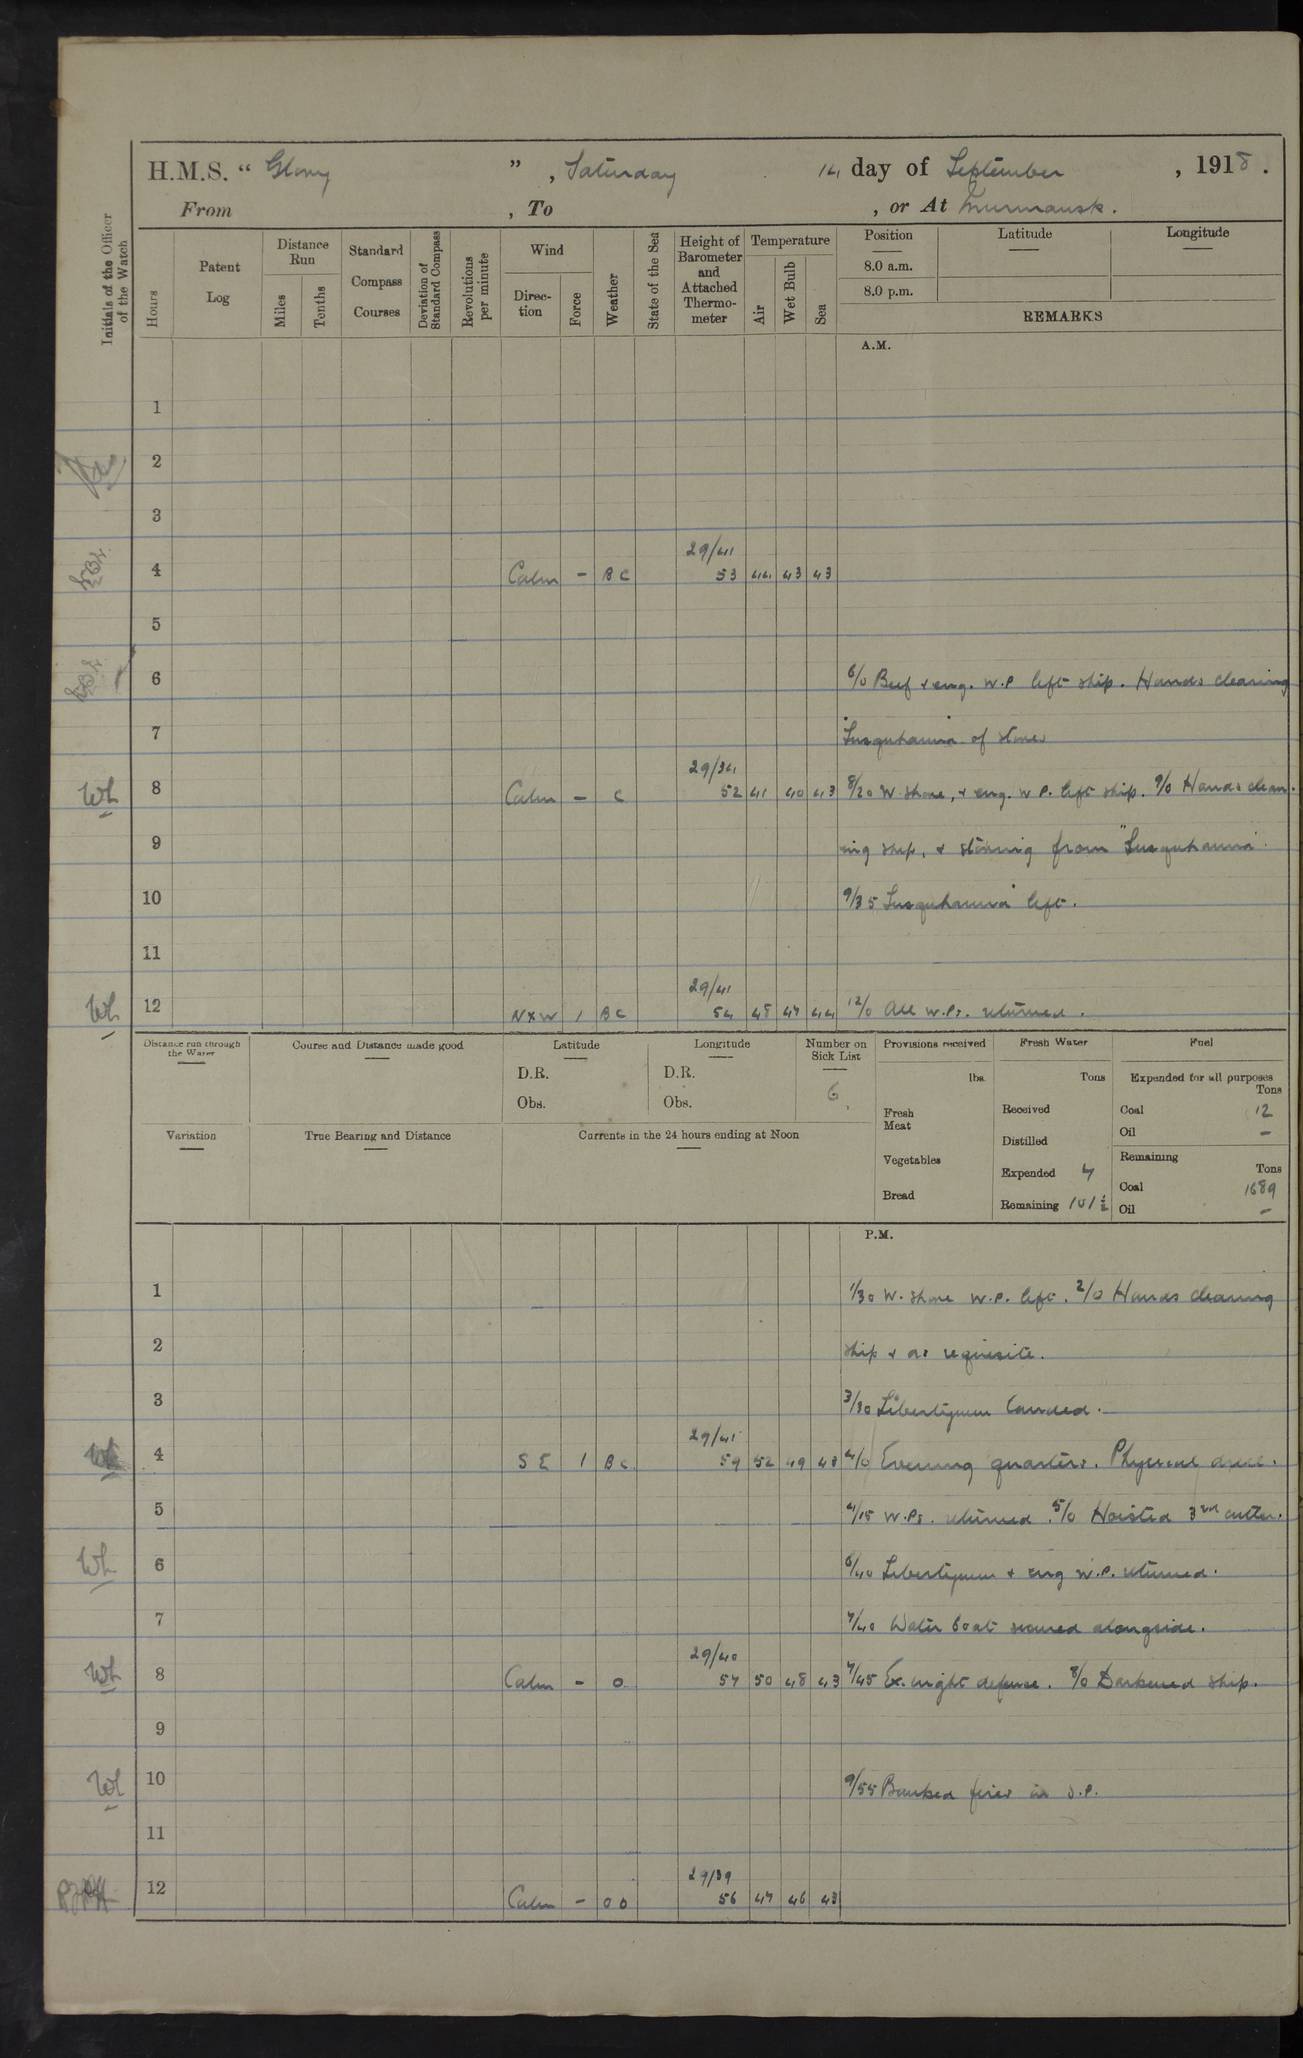 H.M.S. “ Glory ” , Saturday 14 day of September , 1918 .
From , To , or At Murmansk .
Initials of the Officer of the Watch
Hours
Patent Log
Distance Run
Miles
Tenths
Standard Compass Courses
Deviation of Standard Compass
Revolutions per minute
Wind
Direction
Force
Weather
State of the Sea
Height of Barometer and Attached Thermometer
Temperature
Air
Wet Bulb
Sea
Position
8.0 a.m.
8.0 p.m.
Latitude
Longitude
REMARKS
A.M.
1
2
3
29/41
4 Calm – B C 53 44 43 43
5
6 6/0 Beef & eng. W.P left ship. Hands clearing
7 "Susquhanna" of stores
29/34
8 Calm – C 52 41 40 43 8/20 W. shore, & eng. W P. left ship. 9/0 Hands clean-
9 ing ship, & storing from "Susquhanna".
10 9/35 Susquhanna" left.
11
29/41
12 N x W 1 B C 54 48 47 44 12/0 All W.Ps. returned .
Distance run through the Water
Course and Distance made good
Latitude
D.R.
Obs.
Longitude
D.R.
Obs.
Number on Sick List
6
Provisions received
lbs.
Fresh Meat
Vegetables
Bread
Fresh Water
Tons
Received
Distilled
Expended 7
Remaining 101½
Fuel
Expended for all purposes
Tons
Coal 12
Oil –
Remaining
Tons
Coal 1689
Oil –
Variation
True Bearing and Distance
Currents in the 24 hours ending at Noon
P.M.
1 1/30 W. shore W.P. left. 2/0 Hands cleaning
2 ship & as requisite.
3 3/30 Libertymen landed.
29/41
4 S E 1 B C 59 52 49 43 4/0 Evening quarters. Physical drill.
5 4/15 W.Ps. returned 5/0 Hoisted 3rd cutter.
6 6/40 Libertymen & eng W.P. returned.
7 7/40 Water boat secured alongside.
29/40
8 Calm – O 57 50 48 43 7/45 Ex. night defence. 8/0 Darkened ship.
9
10 9/55 Banked fires in S.P.
11
29/39
12 Calm – O O 56 47 46 43